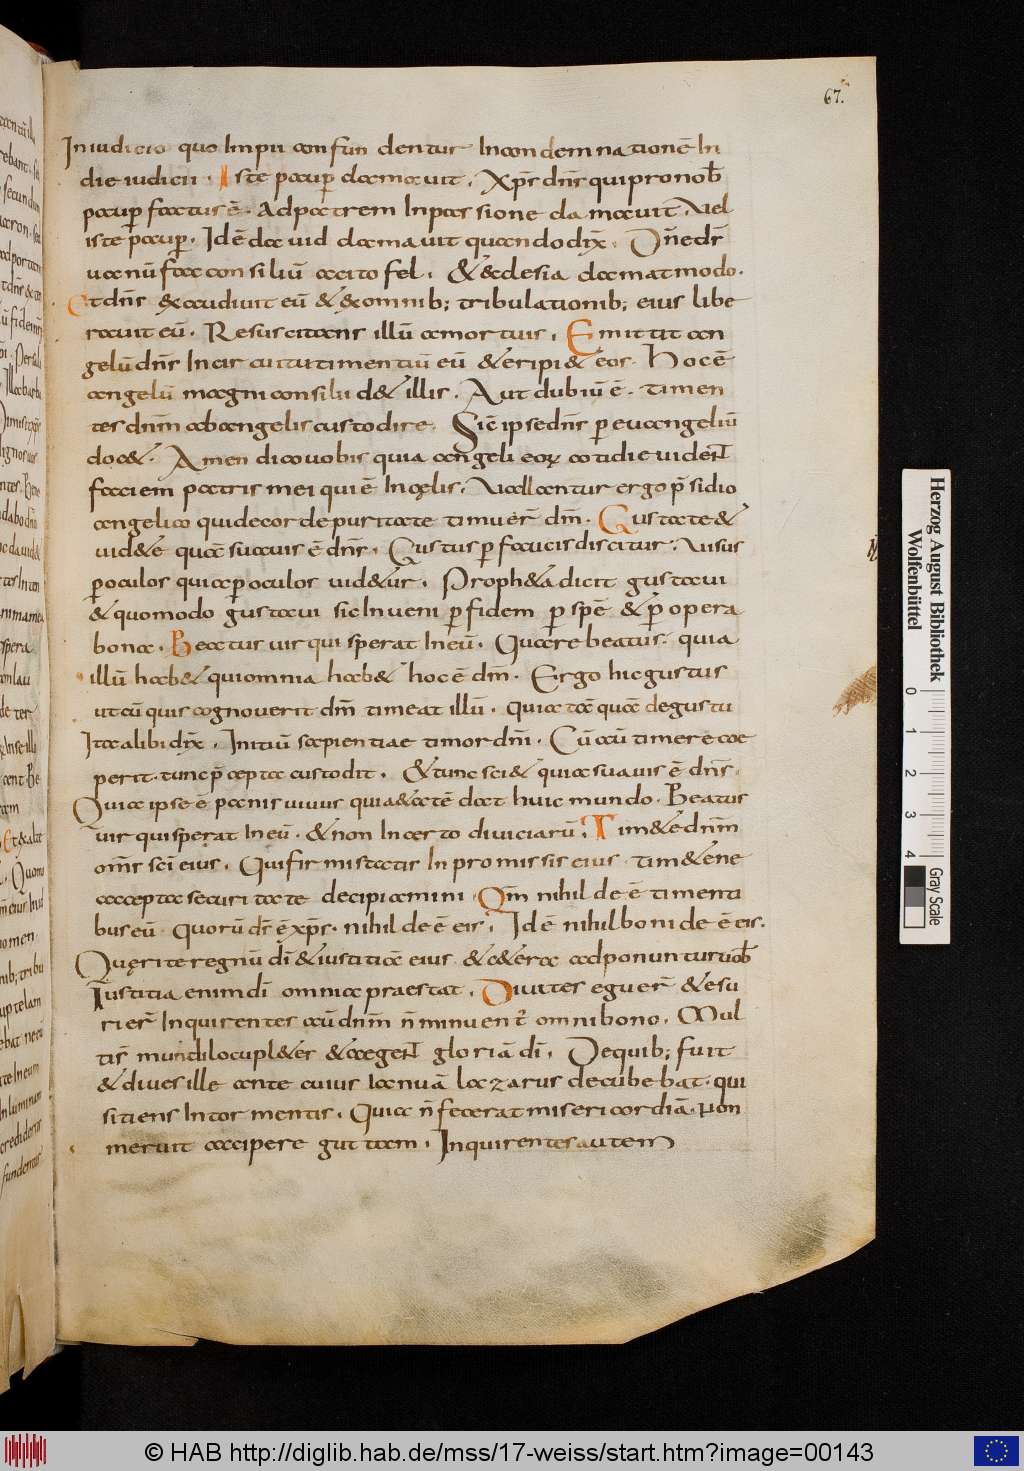 67.
In iudicio quo impii confundentur In condemnationē In
die iudicii . Iste paup̄ clamavit . Xp̄s dn̄s qui pro nob̄
paup̄ factus ē . Ad patrem In passione clamavit . Vel
iste paup̄ . Idē david clamavit quando dix̄ . Dn̄e dr̄
vanū fac consiliū acitofel . & ecclesia clamat modo .
Et dn̄s exaudivit eū & ex omnib; tribulationib; eius libe
ravit eū . Resuscitans illū a mortuis . Emittit an
gelū dn̄s In circuitu timentiū eū & eripi& eos . Hoc ē
angelū magni consilii d& illis . Aut dubiū ē . timen
tes dn̄m ab angelis custodire . Sic̄ ipse dn̄s p̄ evangeliū
doc& . Amen dico vobis quia angeli eoꝝ cotidie vident
faciem patris mei qui ē In cęlis . Vallantur ergo p̄sidio
angelico qui decorde puritate timuer̄ dm̄ . Gustate &
vid&e quā suavis ē dn̄s . Gustus p̄ faucis discitur . Visus
p̄ oculos quia p̄ oculos vid&ur . Proph&a dicit gustavi
& quomodo gustavi sic Inveni p̄ fidem p̄ spē & p̄ opera
bona . Beatus vir qui sperat In eū . Quare beatus . quia
illū hab& qui omnia hab& hoc ē dm̄ . Ergo hic gustus
ut cū quis agnoverit dm̄ timeat illū . quia tā quā degustu
Ita alibi dix̄ . Initiū sapientiae timor dn̄i . Cū aū timere coe
perit . tunc p̄cepta custodit . & tunc sci& quia suavis ē dn̄s .
Quia ipse ē panis vivus qui a&atē dat huic mundo . Beatus
vir qui sperat In eū . & non Incerto diviciarū . Tim&e dn̄m
om̄s sc̄i eius . Qui firmi statis In promissis eius tim&e ne
accepta securitate decipiamini . Qm̄ nihil deē timenti
bus eū . Quorū ds̄ ē xp̄s . nihil deē eis . Id ē nihil boni deē eis .
Quęrite regnū dī & iustitiā eius & c&era adponuntur vob̄
Iustitia enim dī omnia praestat . Divites eguer̄ & esu
rier̄ Inquirentes aū dn̄m n̄ minuent̄ omni bono . Mul
tis̄ mundi locupl&es & aegent gloriā dī . De quib; fuit
& dives ille ante cuius Ianuā lazarus decūbebat . qui
sitiens In tormentis . Quia n̄ fecerat misericordiā . non
meruit accipere guttam . Inquirentes autem
Herzog August Bibliothek
Wolfenbüttel
0 1 2 3 4
Gray Scale
© HAB http://diglib.hab.de/mss/17-weiss/start.htm?image=00143